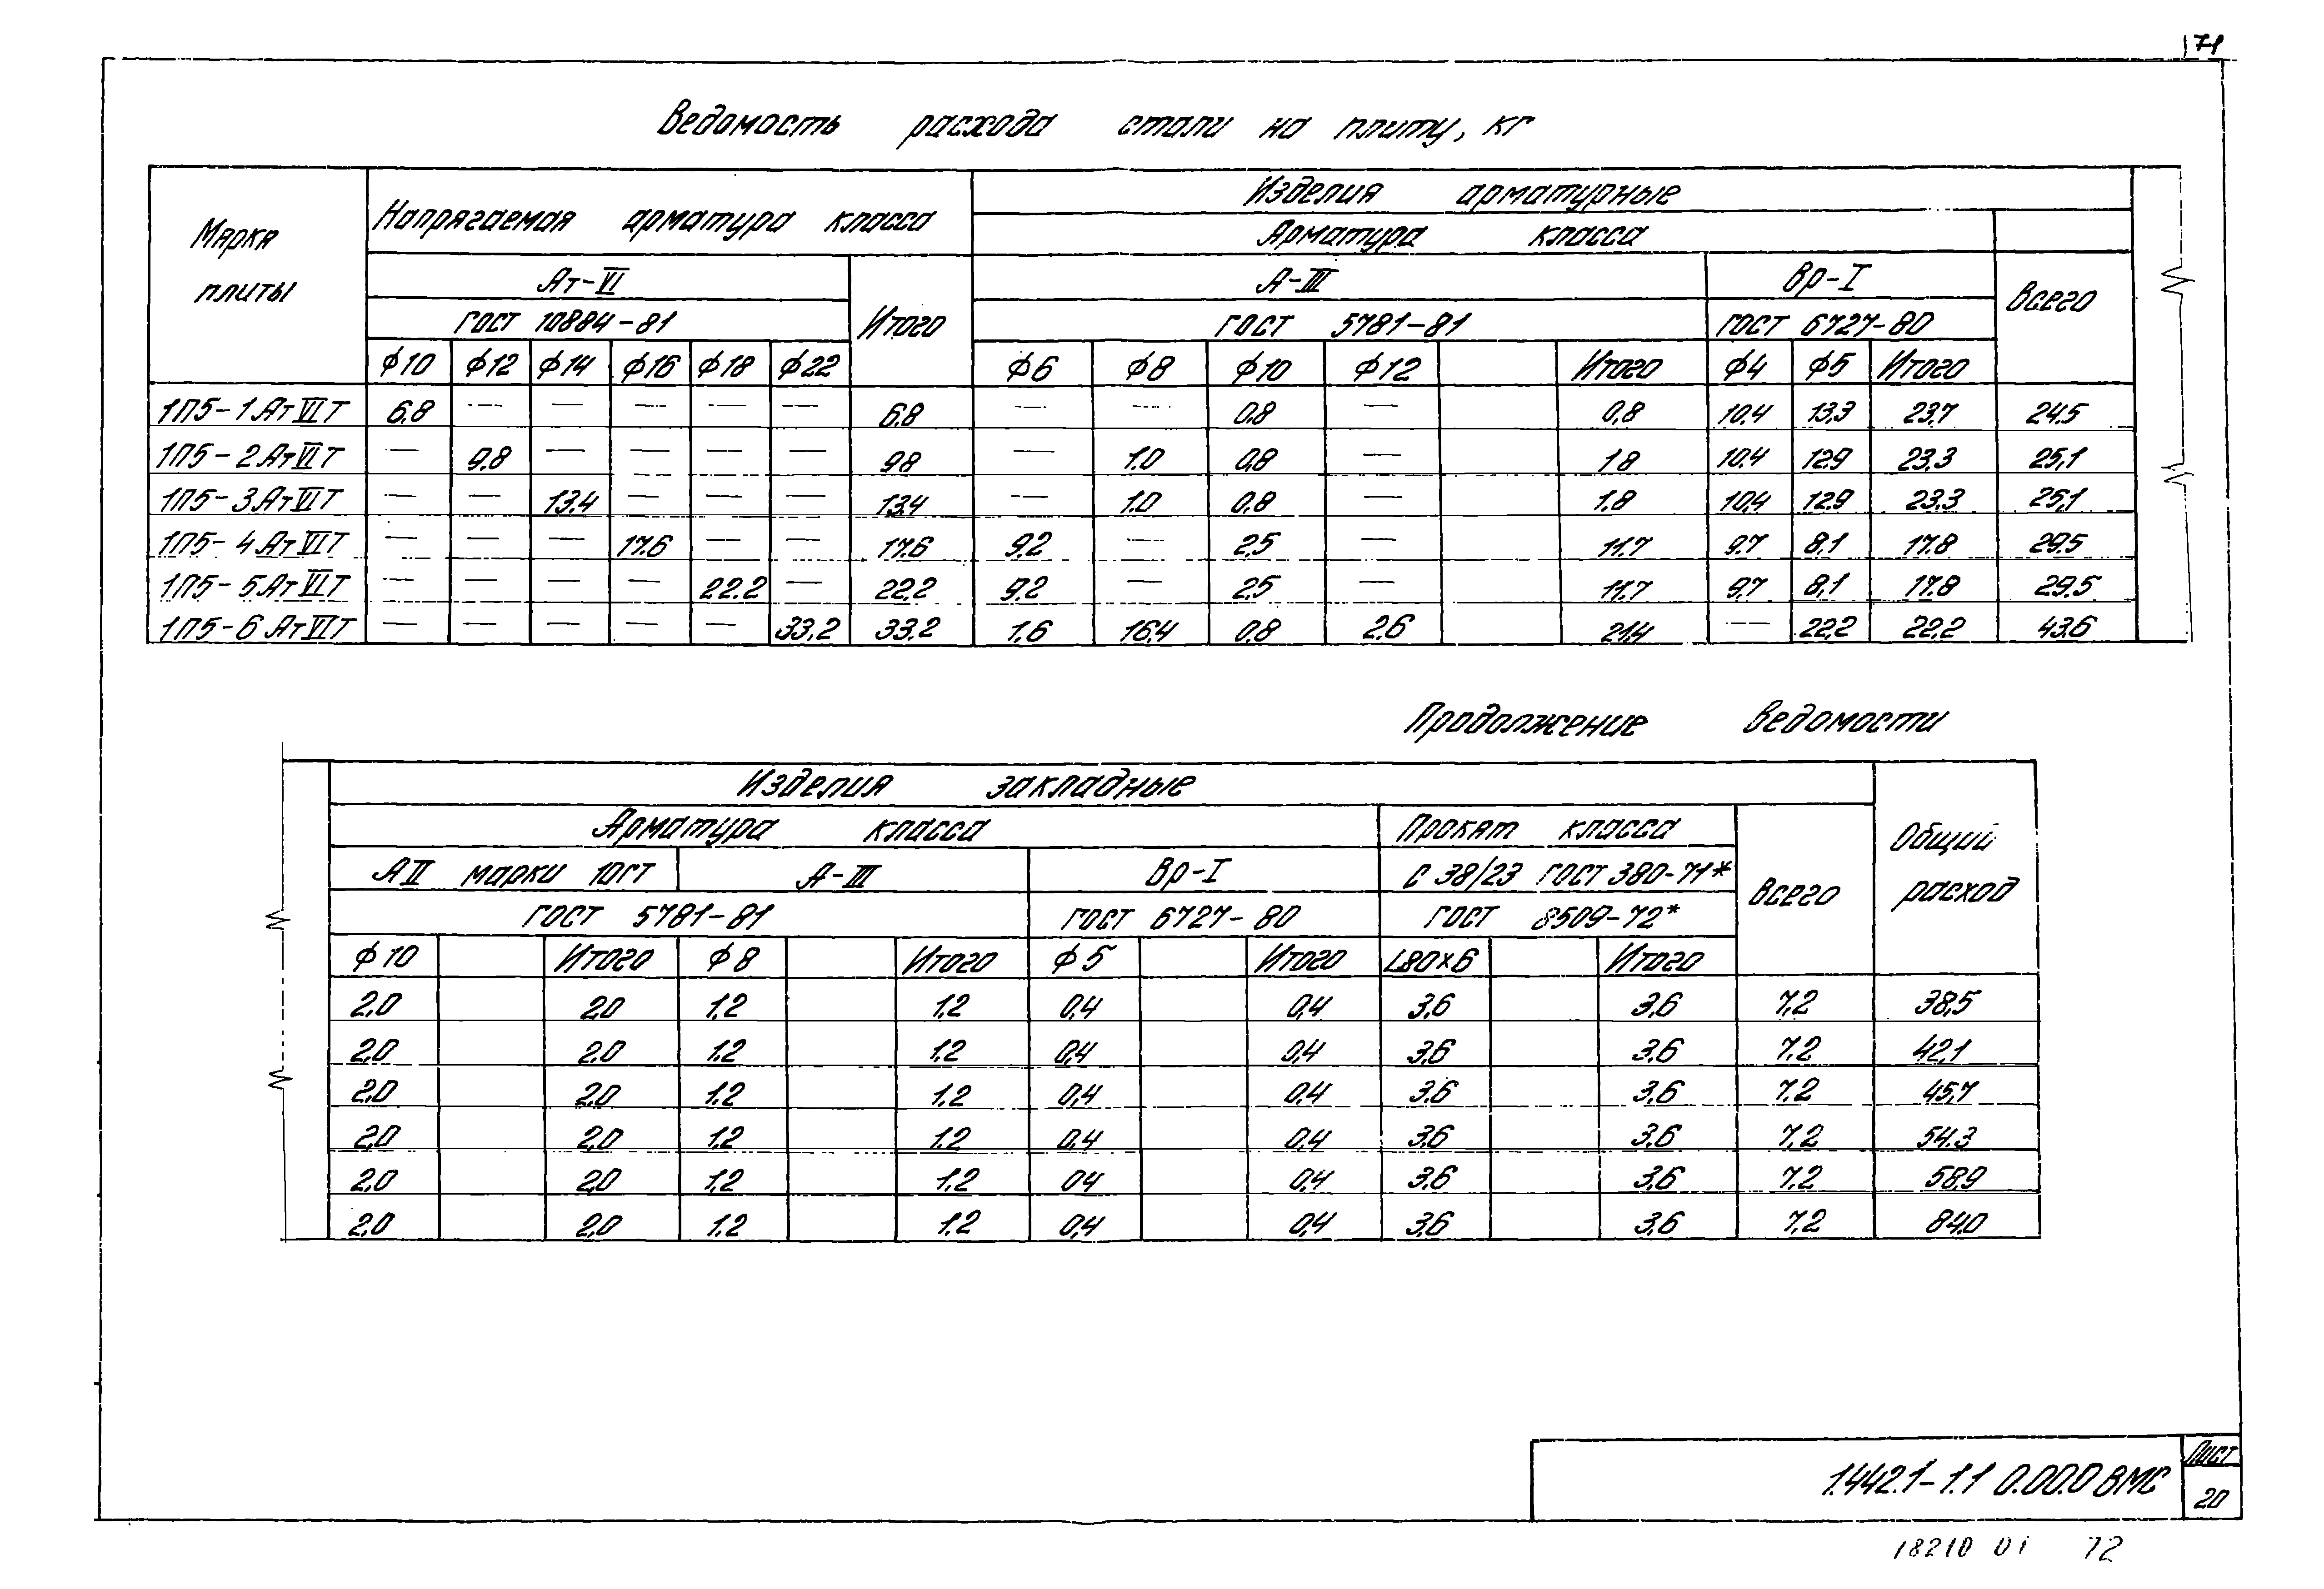 71
Ведомость расхода стали на плиту, кг
Марка плиты
Напрягаемая арматура класса
Изделия арматурные
Арматура класса
Ат-VI
Итого
А-III
Вр-I
Всего
ГОСТ 10884-81
ГОСТ 5781-81
ГОСТ 6727-80
ф10 ф12 ф14 ф16 ф18 ф22 ф6 ф8 ф10 ф12 Итого ф4 ф5 Итого
1П5-1АтVIТ 6.8 — — — — — 6.8 — — 0.8 — 0,8 10,4 13,3 23,7 24.5
1П5-2АтVIТ — 9.8 — — — — 98 — 1.0 0,8 — 1 8 10,4 129 23,3 25,1
1П5-3АтVIТ — — 13,4 — — — 13,4 — 1.0 0.8 — 1.8 10,4 12.9 23.3 25,1
1П5-4АтVIТ — — — 17.6 — — 17.6 9.2 — 2,5 — 11.7 9.7 8.1 17.8 29.5
1П5-5АтVIТ — — — — 22.2 — 22,2 9,2 — 2,5 — 11,7 9,7 8,1 17.8 29.5
1П5-6АтVIТ — — — — — 33,2 33,2 1,6 16,4 0,8 2,6 21,4 — 22,2 22,2 43,6
Продолжение ведомости
Изделия закладные
Общий расход
Арматура класса
Прокат класса
Всего
АII марки 10ГТ
А-III
Вр-I
С 38/23 ГОСТ 380-71*
ГОСТ 5781-81
ГОСТ 6727-80
ГОСТ 8509-72*
ф10 Итого ф8 Итого ф5 Итого L80×6 Итого
2,0 2,0 1.2 1.2 0,4 0,4 3,6 3.6 7.2 38,5
2,0 2.0 1.2 1.2 0,4 0,4 3,6 3,6 7.2 42,1
2,0 2,0 1.2 1.2 0,4 0,4 3.6 3.6 7.2 45,7
2,0 2,0 1.2 1.2 0,4 0,4 3.6 3.6 7.2 54.3
2,0 2,0 1.2 1.2 04 0,4 3.6 3.6 7.2 58,9
2,0 2,0 1.2 1.2 0,4 0,4 3,6 3.6 7.2 84,0
1.442.1-1.1 0.00.0 ВМС
Лист
20
18210 01 72